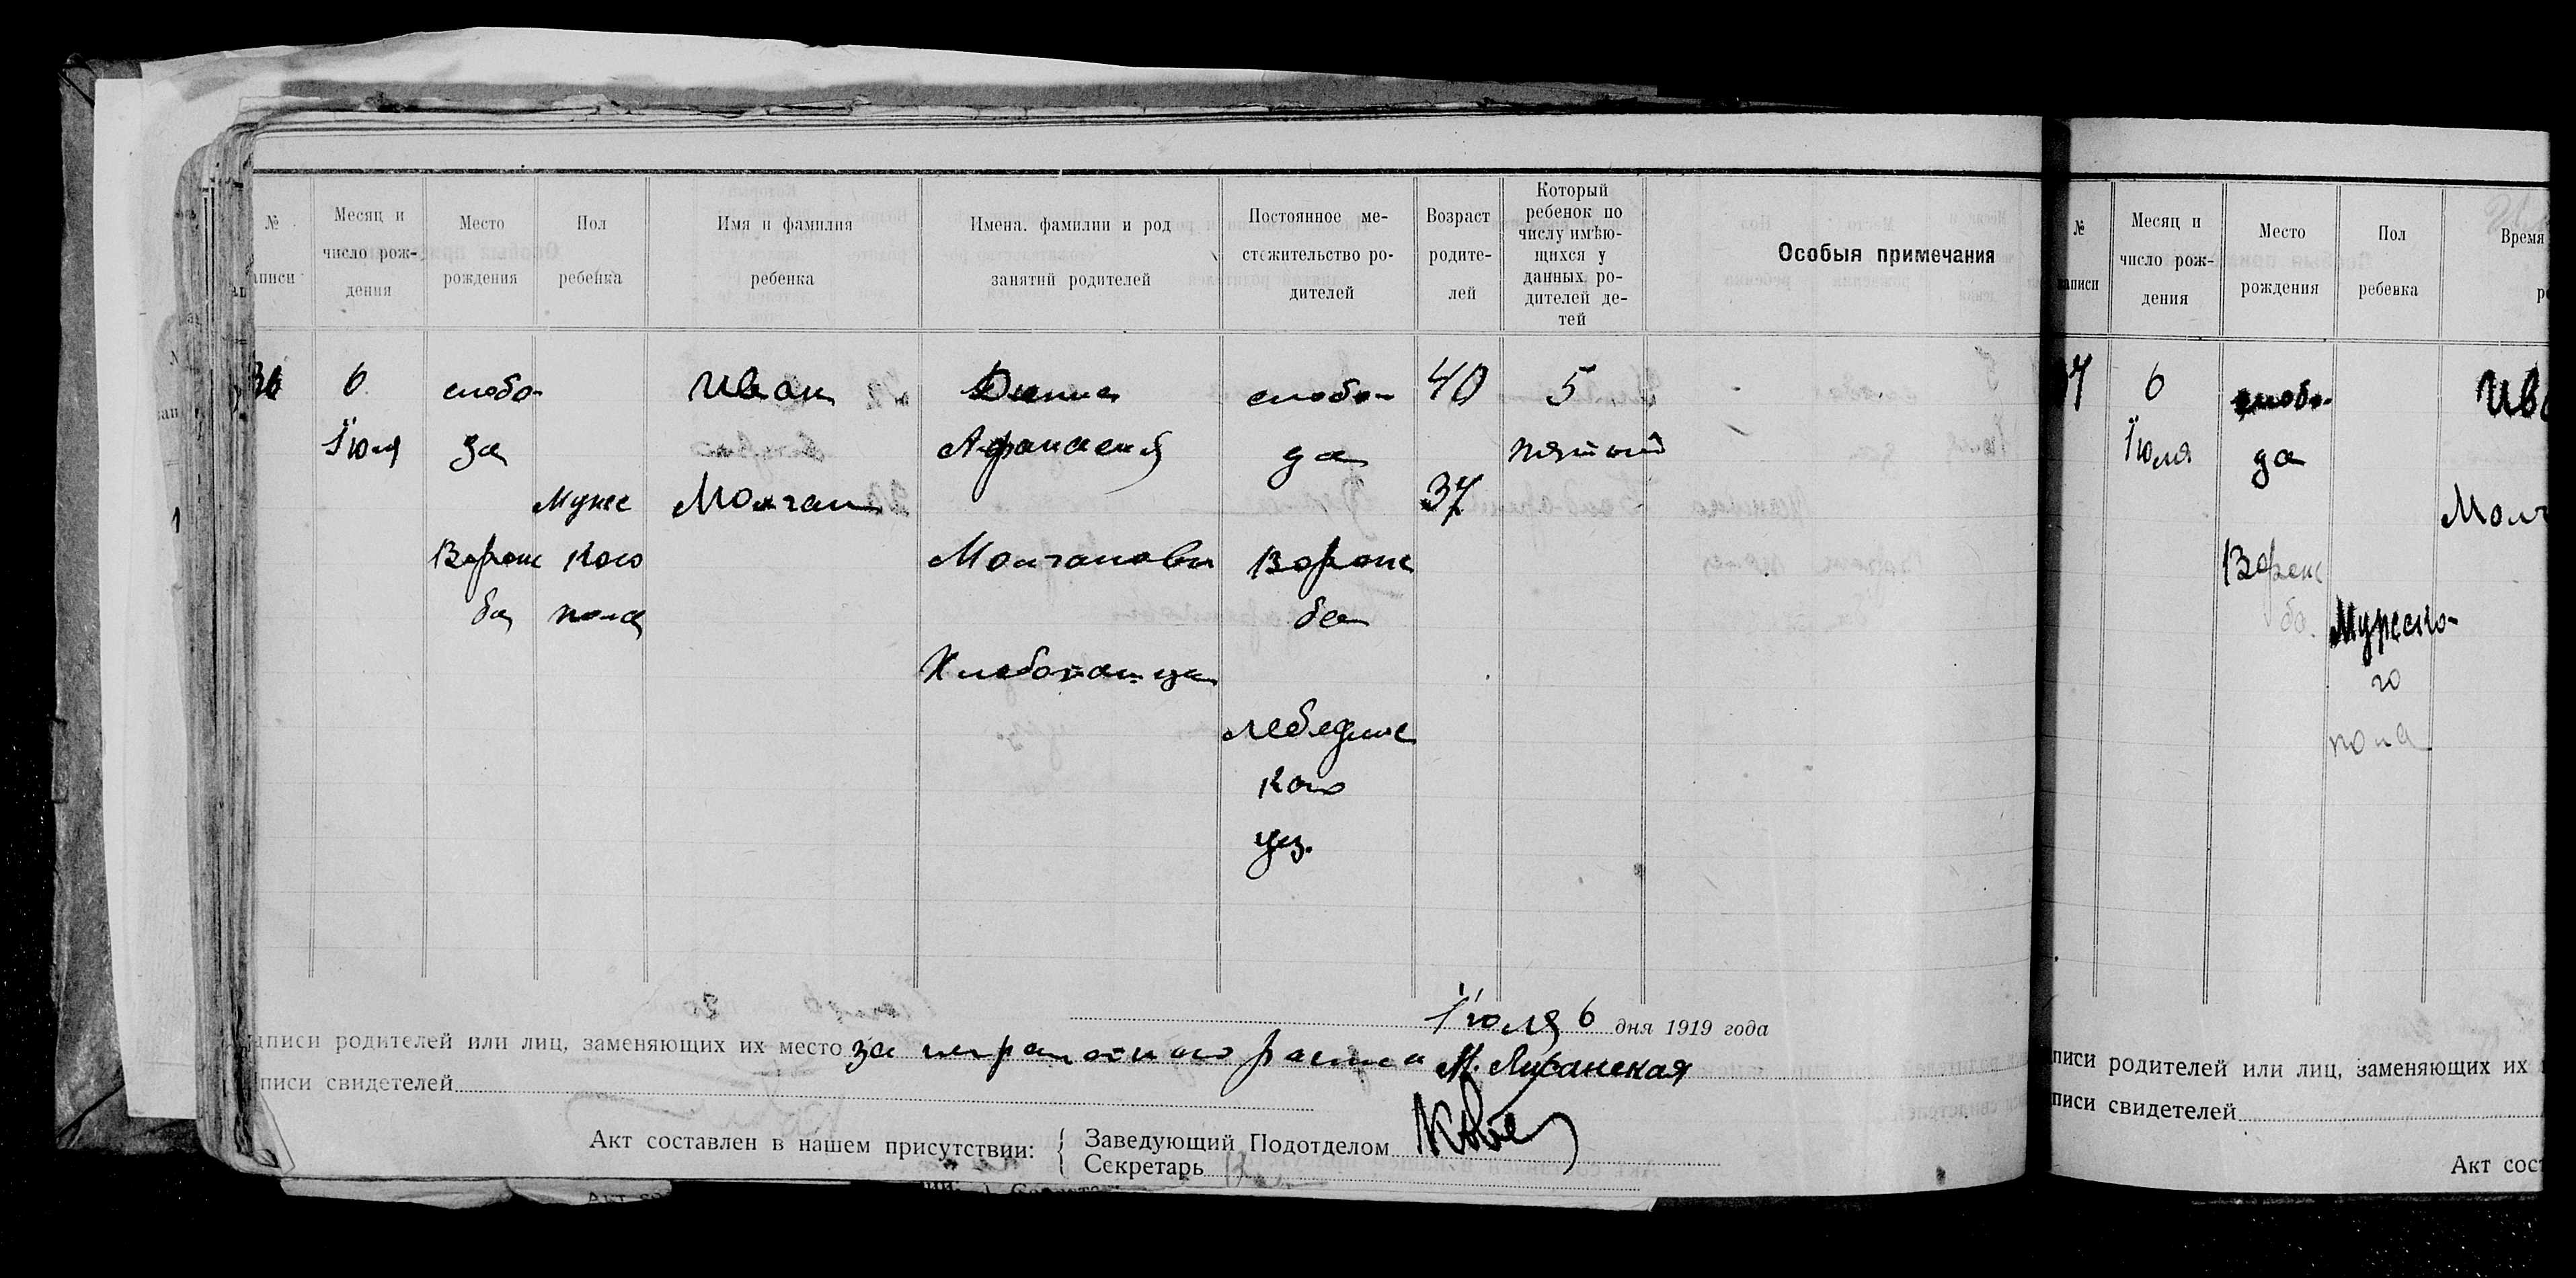 № аписи
Месяц и число рож-дения
Место рождения
Пол ребенка
Имя и фамилия ребенка
Имена. фамилии и род занятий родителей
Постоянное ме-стожительство ро-дителей
Возраст родите-лей
Который ребенок по числу имѣю-щихся у данных ро-дителей де-тей
Особыя примечания
36
6 Iюля
слобо-
да
Ворож
ба
Мужс
кого
пола
Иван
Молчан
Афанасий
Молчановы
Хлебопашцы
слобо-
да
Ворож
ба
Лебединс
кого
уез.
40
37
5
пятый
Iюля 6 дня 1919 года
дписи родителей или лиц, заменяющих их место за неграмотного распис М. Лисанская
писи свидетелей
Акт составлен в нашем присутствии:
Заведующий Подотделом
Секретарь
№ аписи
Месяц и число рож-дения
Место рождения
Пол ребенка
Время
37
6
Iюля
слобо-
да
Ворож
ба.
Мужско-
го
пола
Ива
Молч
писи родителей или лиц, заменяющих их
писи свидетелей
Акт сост